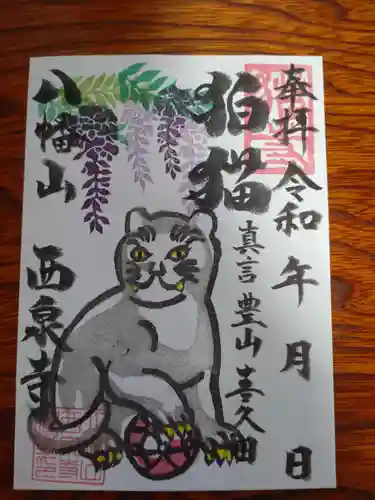 奉拝 令和 年 月 日
狛猫
真言 豊山 喜久田
八幡山 西泉寺